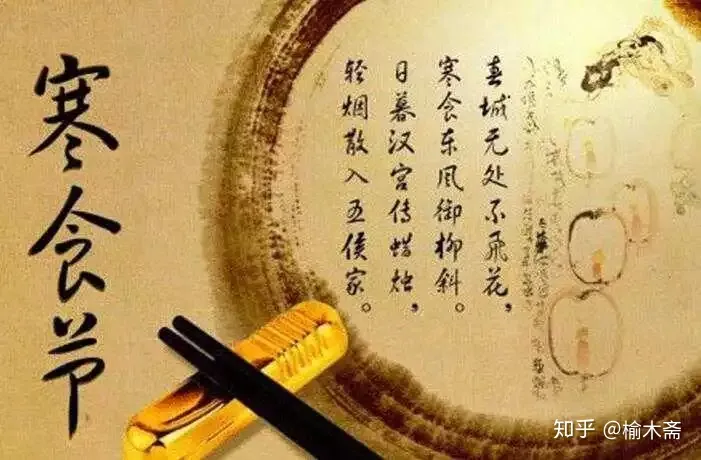 寒食节
春城无处不飛花，
寒食东风御柳斜。
日暮汉宫传蜡烛，
轻烟散入五侯家。
知乎 @榆木斋